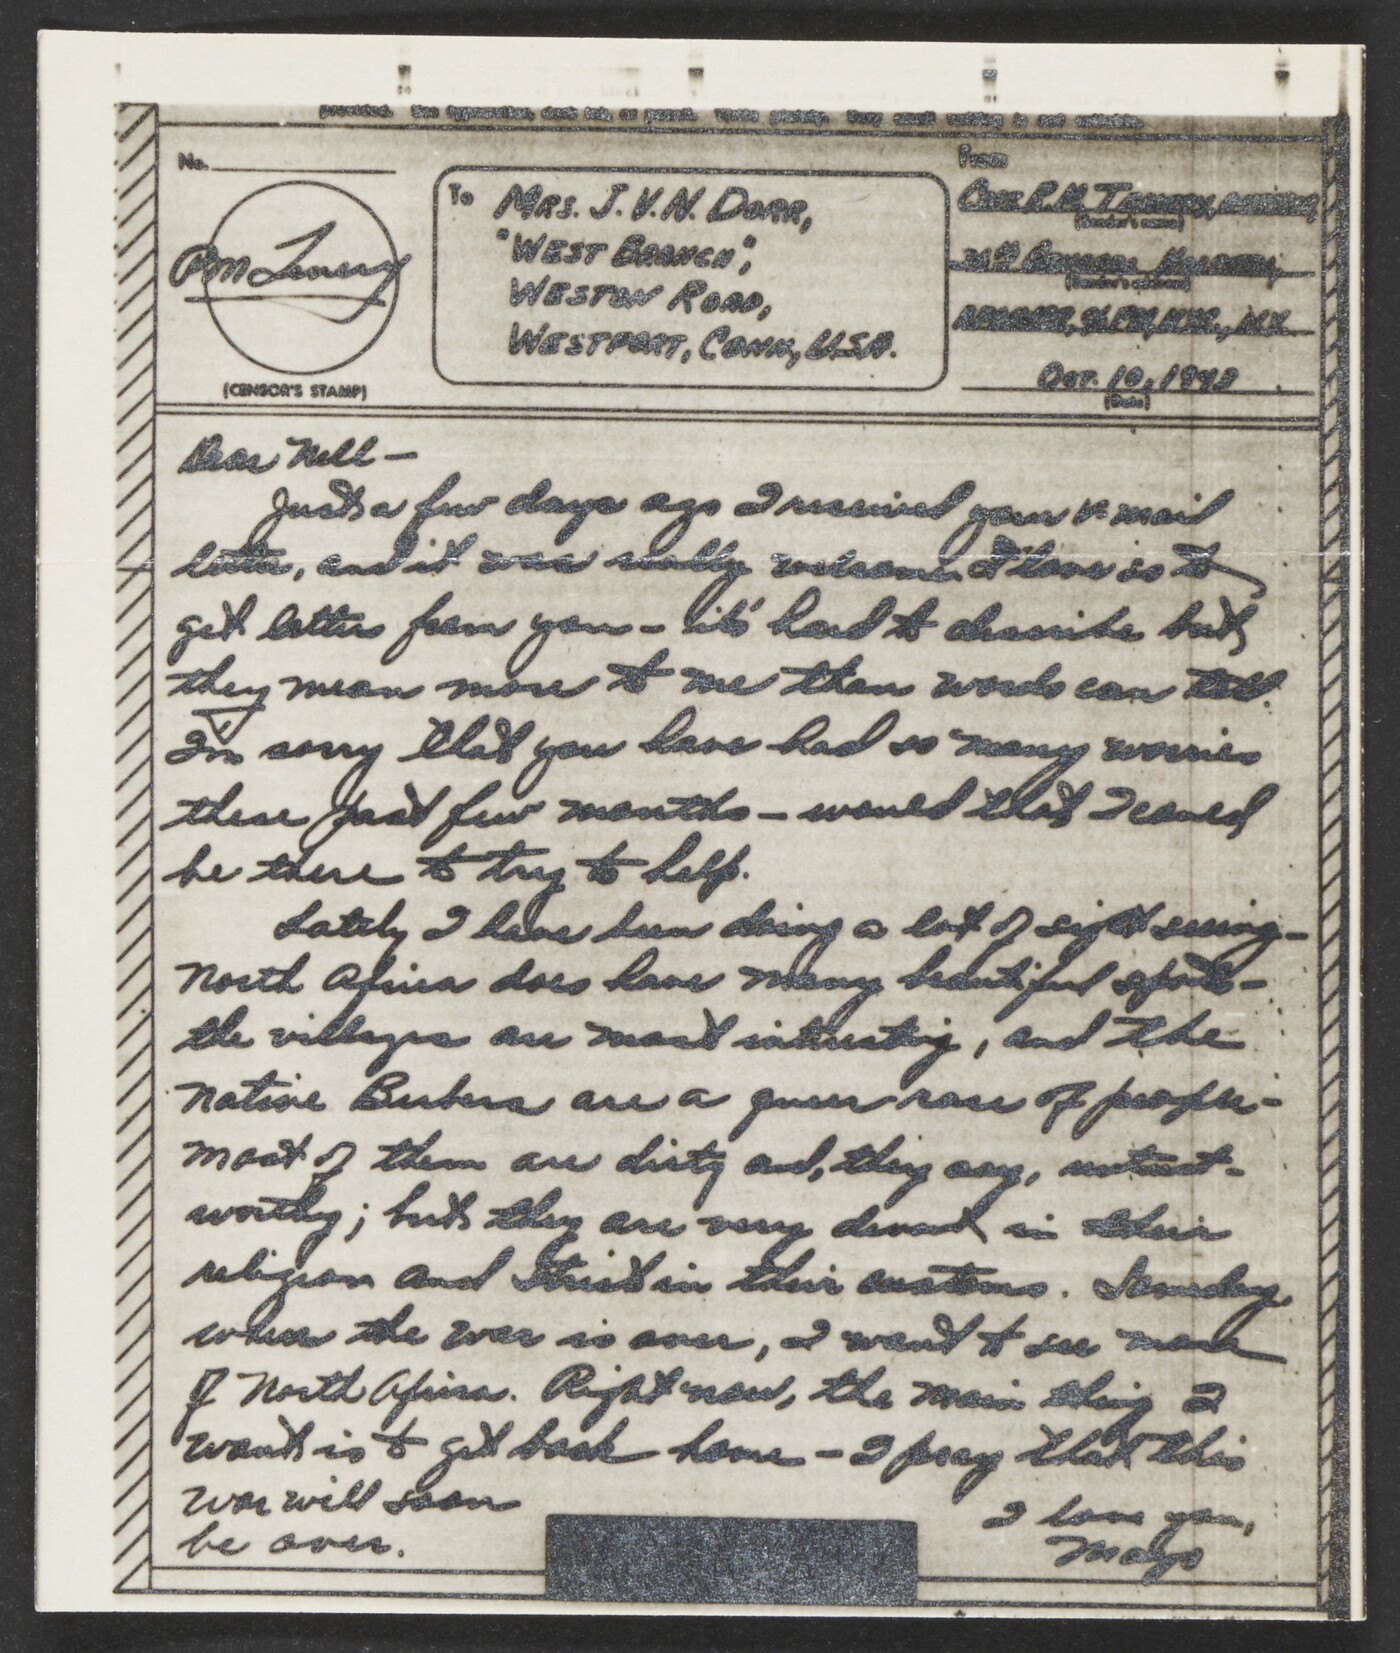 No.
To
From
Mrs. J. V. N. Dorr,
"West Branch",
Weston Road,
Westport, Conn., U.S.A.
P M Tenery
(CENSOR'S STAMP)
Capt. R. M. Tenery,
(Sender's name)
General Hospital,
(Sender's address)
N.Y.
Oct. 10, 1943
(Date)
Dear Nell—
Just a few days ago I received your V-mail
letter, and it was really welcome. I love so to
get letters from you – it's hard to describe but
they mean more to me than words can tell.
I'm sorry that you have had so many worries
these past few months – would that I could
be there to try to help.
Lately I have been doing a lot of sight seeing –
North Africa does have many beautiful spots –
the villages are most interesting, and the
native Berbers are a queer race of people –
most of them are dirty and, they say, untrust-
worthy; but they are very devout in their
religion and strict in their customs. Someday,
when the war is over, I want to see more
of North Africa. Right now, the main thing I
want is to get back home – I pray that this
war will soon
be over.
I love you,
Mayo